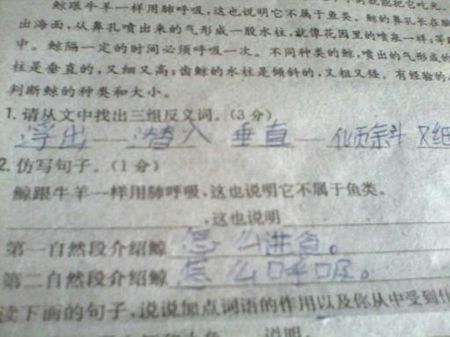 鲸跟牛羊一样用肺呼吸,这也说明它不属于鱼类。鲸的鼻孔长在
出海面,从鼻孔喷出来的气形成一股水柱,就像花园里的喷泉一样;等
中。鲸隔一定的时间必须呼吸一次。不同种类的鲸,喷出的气形成的
柱是垂直的,又细又高;齿鲸的水柱是倾斜的,又粗又矮。有经验的
判断鲸的种类和大小。
1. 请从文中找出三组反义词。(3分)
浮出——潜入 垂直——倾斜 又细
2. 仿写句子。(1分)
鲸跟牛羊一样用肺呼吸,这也说明它不属于鱼类。
,这也说明
第一自然段介绍鲸怎么进食。
第二自然段介绍鲸怎么呼吸。
读下面的句子,说说加点词语的作用以及你从中受到什
说明